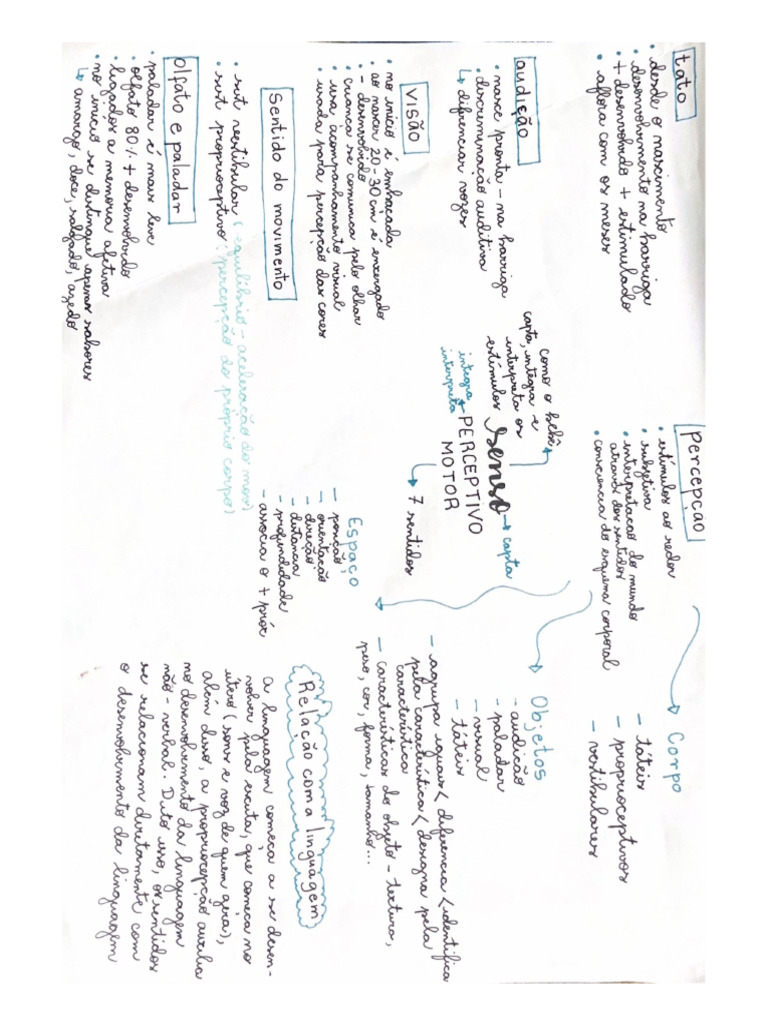 tato
• desde o nascimento
• desenvolvimento na barriga
• + desenvolvido + estimulado
• aflora com os meses
audição
• nasce pronta - na barriga
• discremenação auditiva
↳ difrenciar vozes
visão
• no início é embaçada
• ao nascer 20-30cm é enxergado
• - desenvolvido
• criança se comunica pelo olhar
• usa acompanhamento visual
• usada para percepção das cores
Sentido do movimento
• sist vestibular (equilíbrio - aceleração do mov)
• sist proprioceptivo: percepção do próprio corpo)
olfato e paladar
• paladar é mais leve
• olfato 80% + desenvolvido
• ligados a memoria afetiva
• no início se distingue apenas sabores
↳ amargo, doce, salgado, azedo
como o bebê
capta, integra e
interpreta os
estímulos
senso → capta
integra
interpreta
PERCEPTIVO
MOTOR
→ 7 sentidos
Percepção
• estímulos ao redor
• subjetiva
• interpretacao do mundo
através dos sentidos
• consciencia do esquema corporal
Corpo
- táteis
- proprioceptivos
- vestibulares
Objetos
- audição
- paladar
- visual
- táteis
- agrupa iguais < diferencia < identifica
pela característica < designa pela
característica
- características do objeto - textura,
peso, cor, forma, tamanho...
Espaço
- posição
- orientação
- direção
- distancia
- profundidade
- associa o + próx
Relação com a linguagem
a linguagem começa a se desen-
volver pela escuta, que começa no
útero (sons e voz de quem gera),
além disso, a propriocepção auxilia
no desenvolvimento da linguagem
não-verbal. Dito isso, os sentidos
se relacionam diretamente com
o desenvolvimento da linguagem